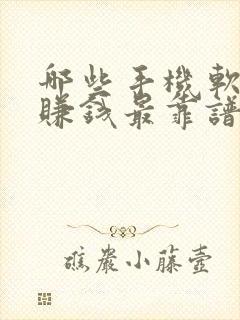 哪些手機軟
賺錢最靠譜
礁巖小藤壺